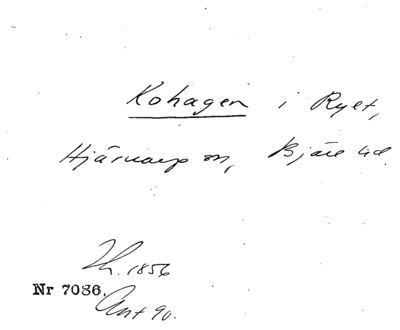 Kohagen i Ryet,
Hjärnarp sn, Bjäre hd.
Th. 1856
Nr 7086.
Ant 90.